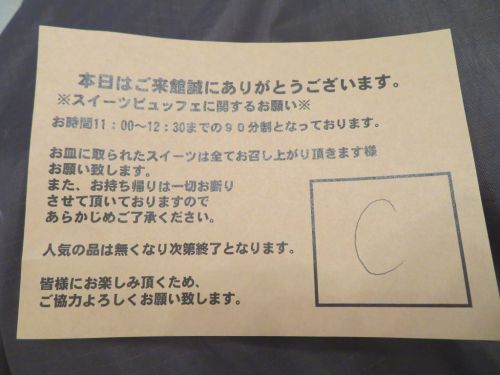 本日はご来館誠にありがとうございます。
※スイーツビュッフェに関するお願い※
お時間11:00〜12:30までの90分制となっております。
お皿に取られたスイーツは全てお召し上がり頂きます様
お願い致します。
また、お持ち帰りは一切お断り
させて頂いておりますので
あらかじめご了承ください。
人気の品は無くなり次第終了となります。
皆様にお楽しみ頂くため、
ご協力よろしくお願い致します。
C